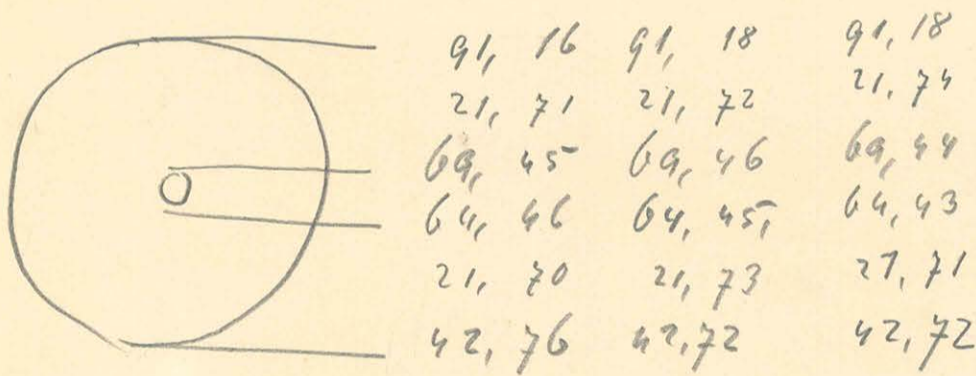 91, 16 91, 18 91, 18
21, 71 21, 72 21, 74
69, 45 69, 46 69, 44
64, 46 64, 45, 64, 43
21, 70 21, 73 21, 71
42, 76 42,72 42, 72